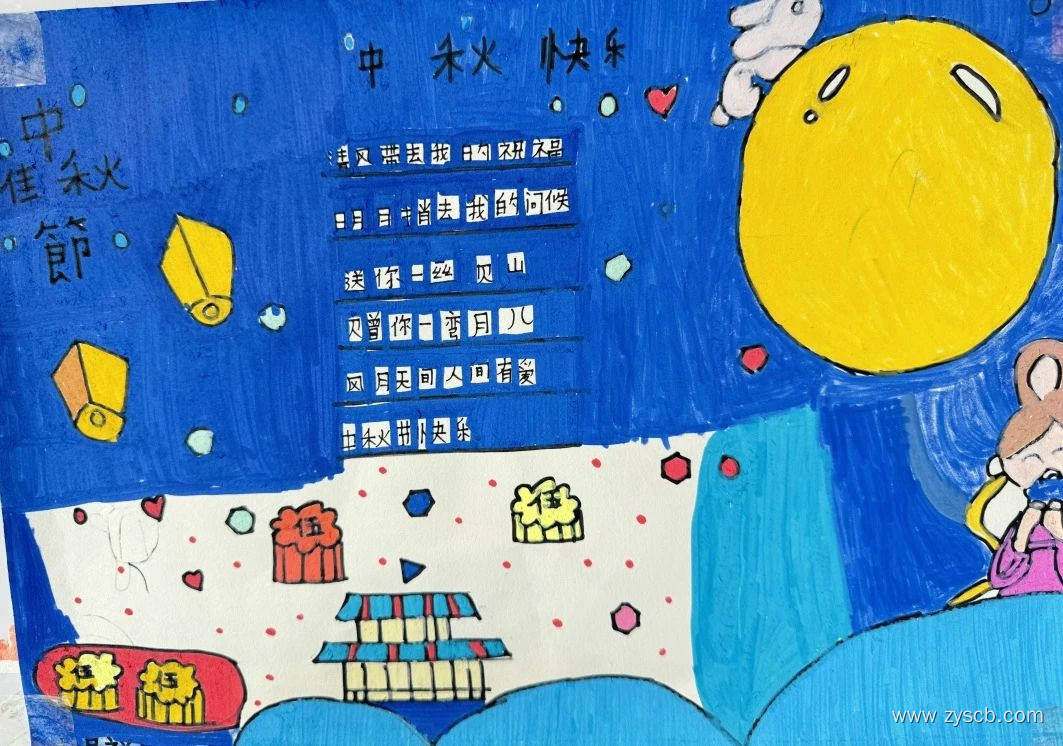 中秋快乐
中
秋
佳
節
清风带去我的祝福
明月捎去我的问候
送你一丝
你一弯月儿
风月天间人间有爱
中秋节快乐
伍
伍
伍
伍
www.zyscb.com